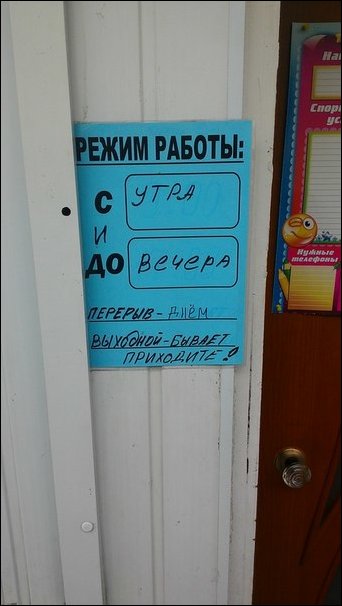 РЕЖИМ РАБОТЫ:
С
УТРА
И
ДО
Вечера
ПЕРЕРЫВ - ДНЁМ
ВЫХОДНОЙ - БЫВАЕТ
ПРИХОДИТЕ!
На
Спор
ус
Нужные
телефоны